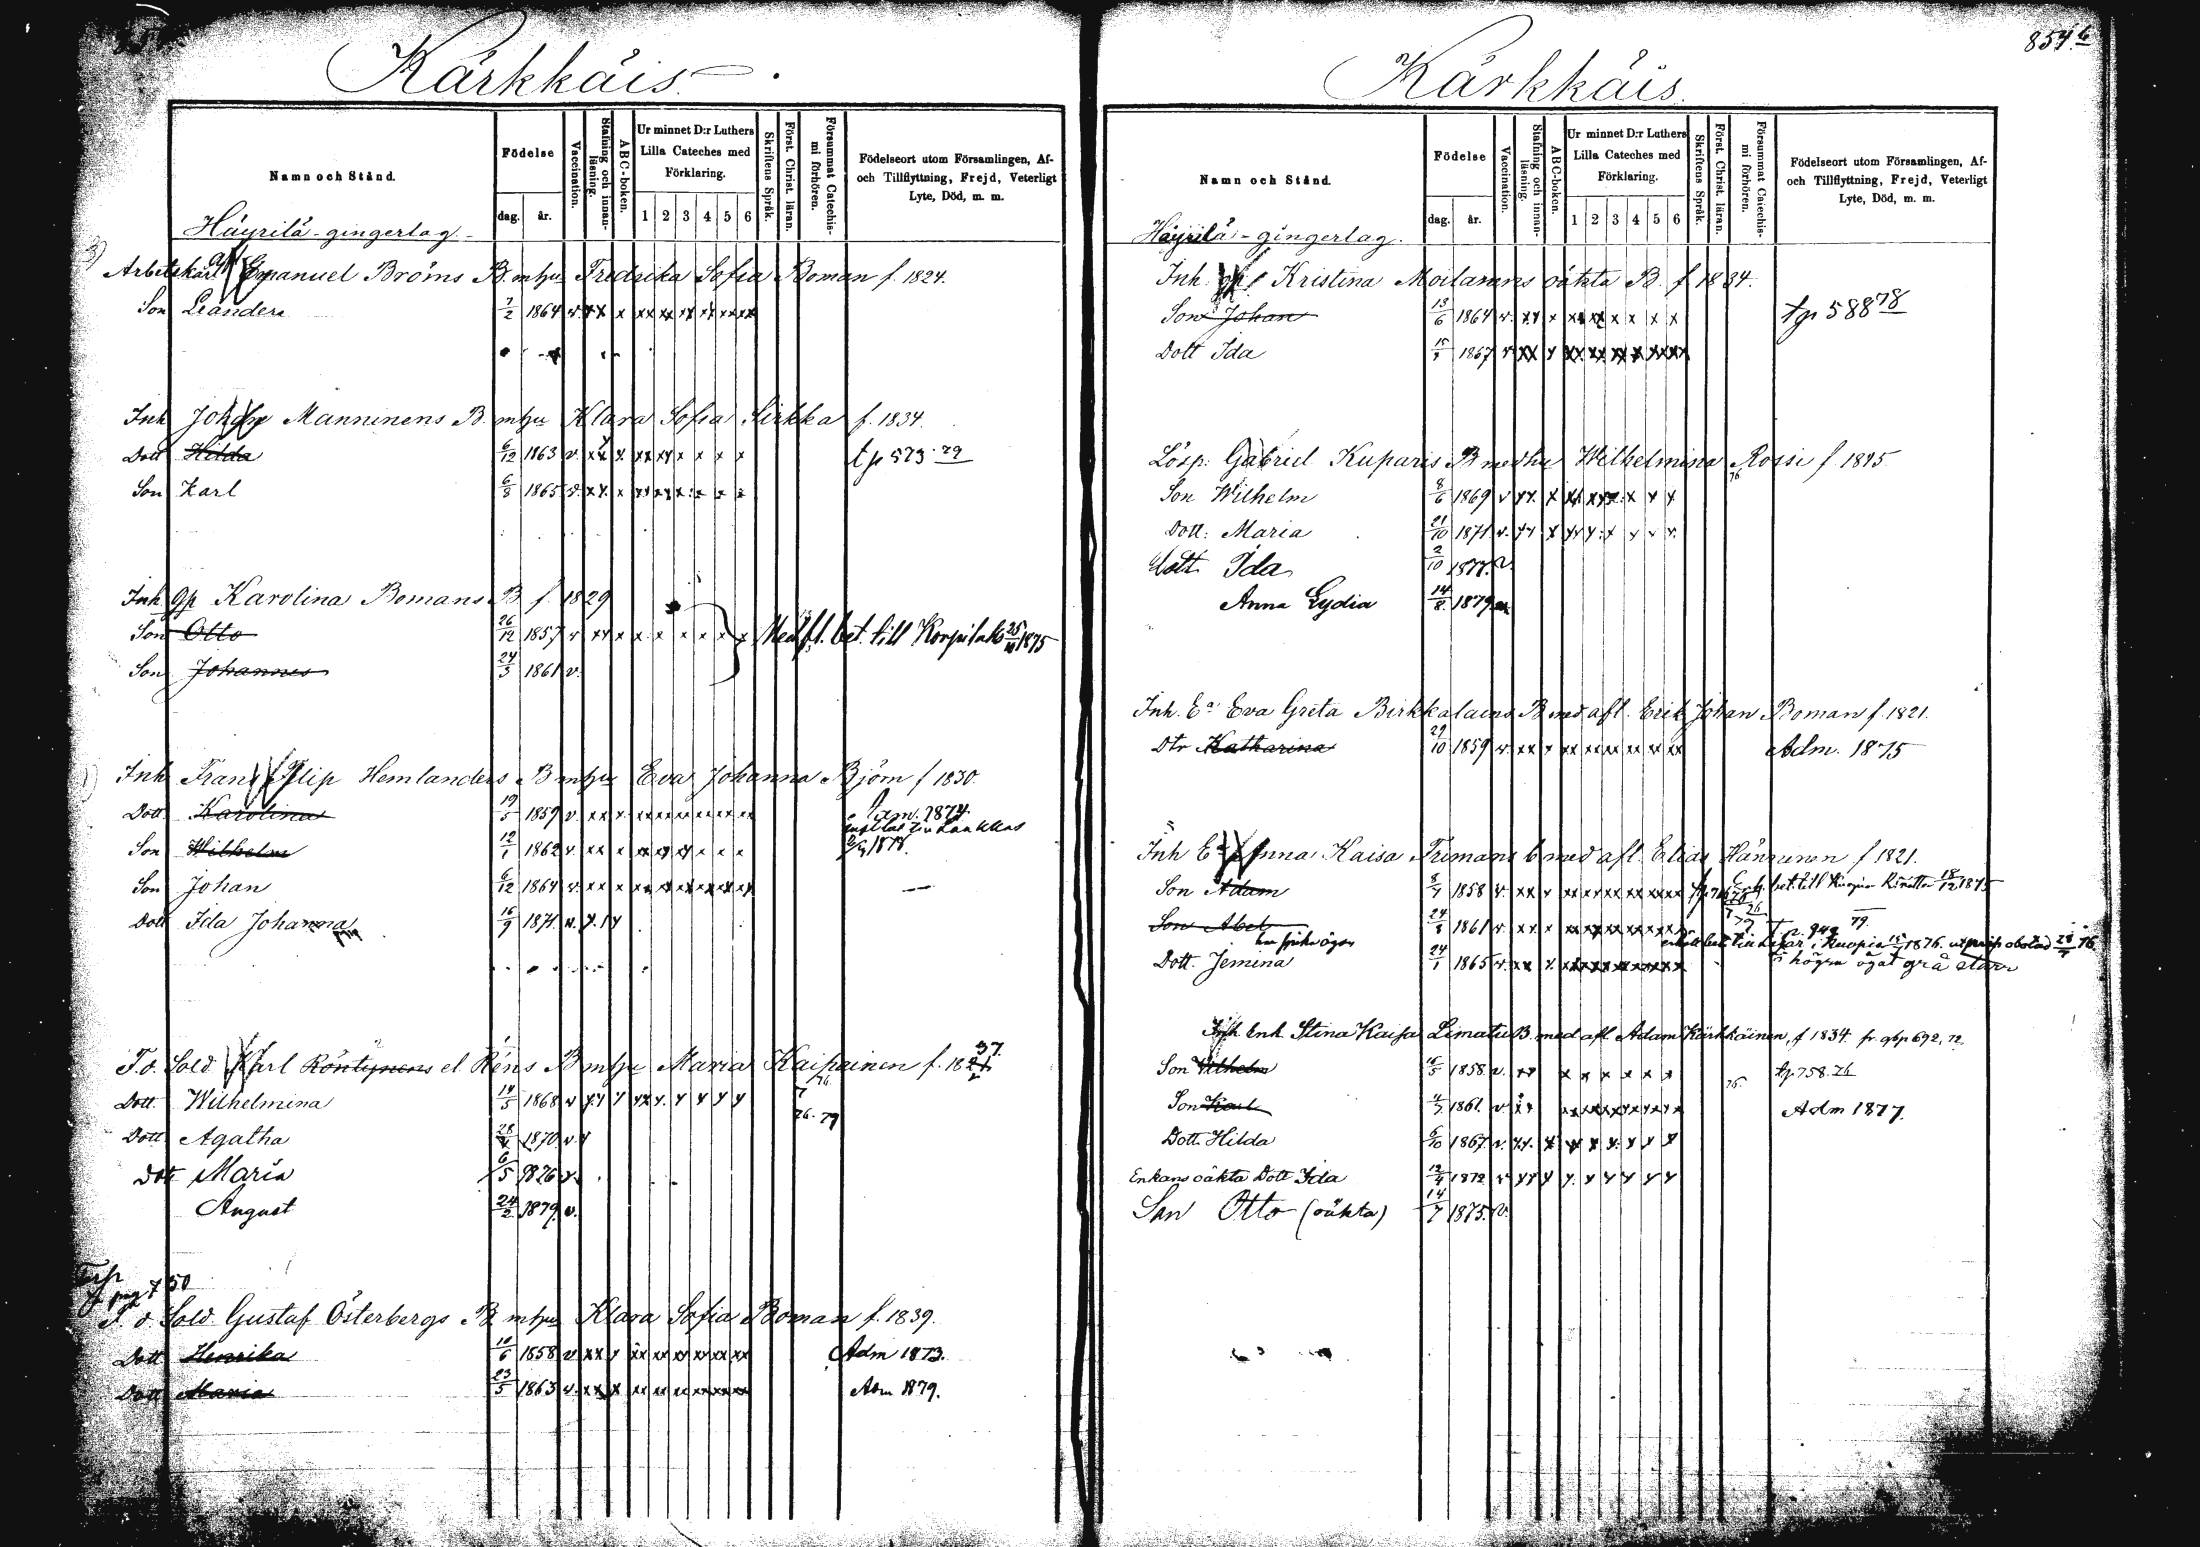 Kärkkäis
Namn och Stånd.
Födelse
dag. år.
Vaccination.
Stafning och innanläsning.
ABC-boken.
Ur minnet D:r Luthers Lilla Cateches med Förklaring.
1 2 3 4 5 6
Skriftens Språk.
Först. Christ. läran.
Försummat Catechismi förhören.
Födelseort utom Församlingen, Af- och Tillflyttning, Frejd, Veterligt Lyte, Död, m. m.
Häyrilä-gingerlag
Arbetskarl Emanuel Bröms B. m hu Fredrika Sofia Boman f. 1824.
Son Leander 7/2 1864 v. xx x xx xx xx xx xx xx
Inh Johan Manninens B. m hu Klara Sofia Sirkka f. 1834.
Dott Hilda 6/12 1863 v. xx x xx xx x x x x tp 573.79
Son Karl 6/3 1865 v. xx. x xx xx x x x x
Inh gp Karolina Bomans B. f. 1829
Son Otto 26/12 1857 v xx x x x x x x x fl. bet. till 1875
Son Johannes 24/3 1861 v.
Inh Frans Flip Hemlanders B m hu Eva Johanna Björn f 1830.
Dott Karolina 19/5 1859 v. xx x xx xx xx xx xx xx Adm. 1874.
Son Wilhelm 12/1 1862 v. xx x xx xx xx x x x 1878.
Son Johan 6/12 1864 v. xx x xx xx xx xx xx xx
Dott Ida Johanna 16/9 1871
T. d. Sold. Karl Röntynens el Réns B m hu Maria Kaipainen f. 18 37.
Dott. Wilhelmina 14/5 1868 76
Dott Agatha 1870 76. 79
Dott Maria 6/5 1876 v.
August 24/2 1879. v.
pag 750
T. d. Sold. Gustaf Österbergs B. m hu Klara Sofia Boman f. 1839.
Dott Henrika 10/6 1858 v xx x xx xx xx xx xx xx Adm 1873.
Dott Maria 23/5 1863 v. xx x xx xx xx xx xx xx Adm 1879.
854.6
Kärkkäis
Namn och Stånd.
Födelse
dag. år.
Vaccination.
Stafning och innanläsning.
ABC-boken.
Ur minnet D:r Luthers Lilla Cateches med Förklaring.
1 2 3 4 5 6
Skriftens Språk.
Först. Christ. läran.
Försummat Catechismi förhören.
Födelseort utom Församlingen, Af- och Tillflyttning, Frejd, Veterligt Lyte, Död, m. m.
Häyrilä-gingerlag.
Inh. gp. Kristina Moilanens oäkta B. f. 1834.
Son Johan 13/6 1864 v. xx x xx xx x x x x tp 588 78
Dott Ida 1867 v xx x xx xx xx xx xx xx
Lösp. Gabriel Kuparis B med hu Wilhelmina Rossi f 1845
Son Wilhelm 8/6 1869 76
Dott: Maria 21/10 1871 v.
Dott Ida 2/10 1877. v.
Anna Lydia 14/8. 1879
Inh. Ea Eva Greta Birkkalains B med afl. Erik Johan Boman f. 1821.
Dtr Katharina 29/10 1859 v. xx x xx xx xx xx xx xx Adm. 1875
Inh Ea Anna Kaisa Trimans b med afl. Elias Hänninen f 1821.
Son Adam 8/7 1858 v. xx x xx xx xx xx xx xx bet. till 18/12 1875
Son Abel 24/8 1861 v. xx x xx xx xx xx xx xx 79.
Dott. Jemina 24/1 1865 v. xx x. xx xx xx xx xx xx Kuopio 15/1 1876.
högra ögat grå starr
Inh. Enk. Stina Kaisa Limatus B. med afl Adam Kärkkäinen, f 1834. fr. gbp 692, 72
Son Wilhelm 16/5 1858 v. xx x x x x x x tp 758.76
Son Karl 4/7 1861. v xx xx xx xx xx xx xx Adm 1877.
76.
Dott Hilda 6/10 1867 v. xx. x x x x. x x x
Enkans oäkta Dott Ida 12/4 1872
Son Otto (oäkta) 14/7 1875. v.